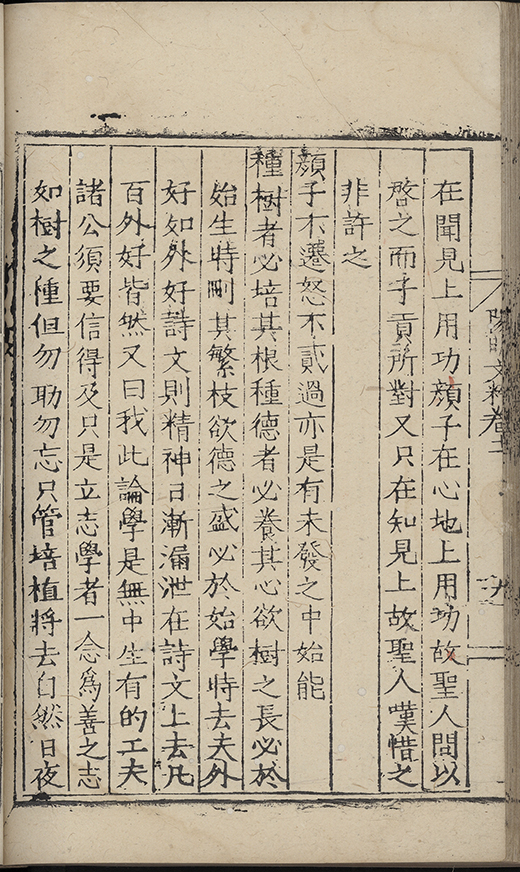 在聞見上用功顏子在心地上用功故聖人問以
啓之而子貢所對又只在知見上故聖人嘆惜之
非許之
顏子不遷怒不貳過亦是有未發之中始能
種樹者必培其根種德者必養其心欲樹之長必於
始生時刪其繁枝欲德之盛必於始學時去夫外
好如外好詩文則精神日漸漏泄在詩文上去凡
百外好皆然又曰我此論學是無中生有的工夫
諸公須要信得及只是立志學者一念爲善之志
如樹之種但勿助勿忘只管培植將去自然日夜
陽明文粹卷十一